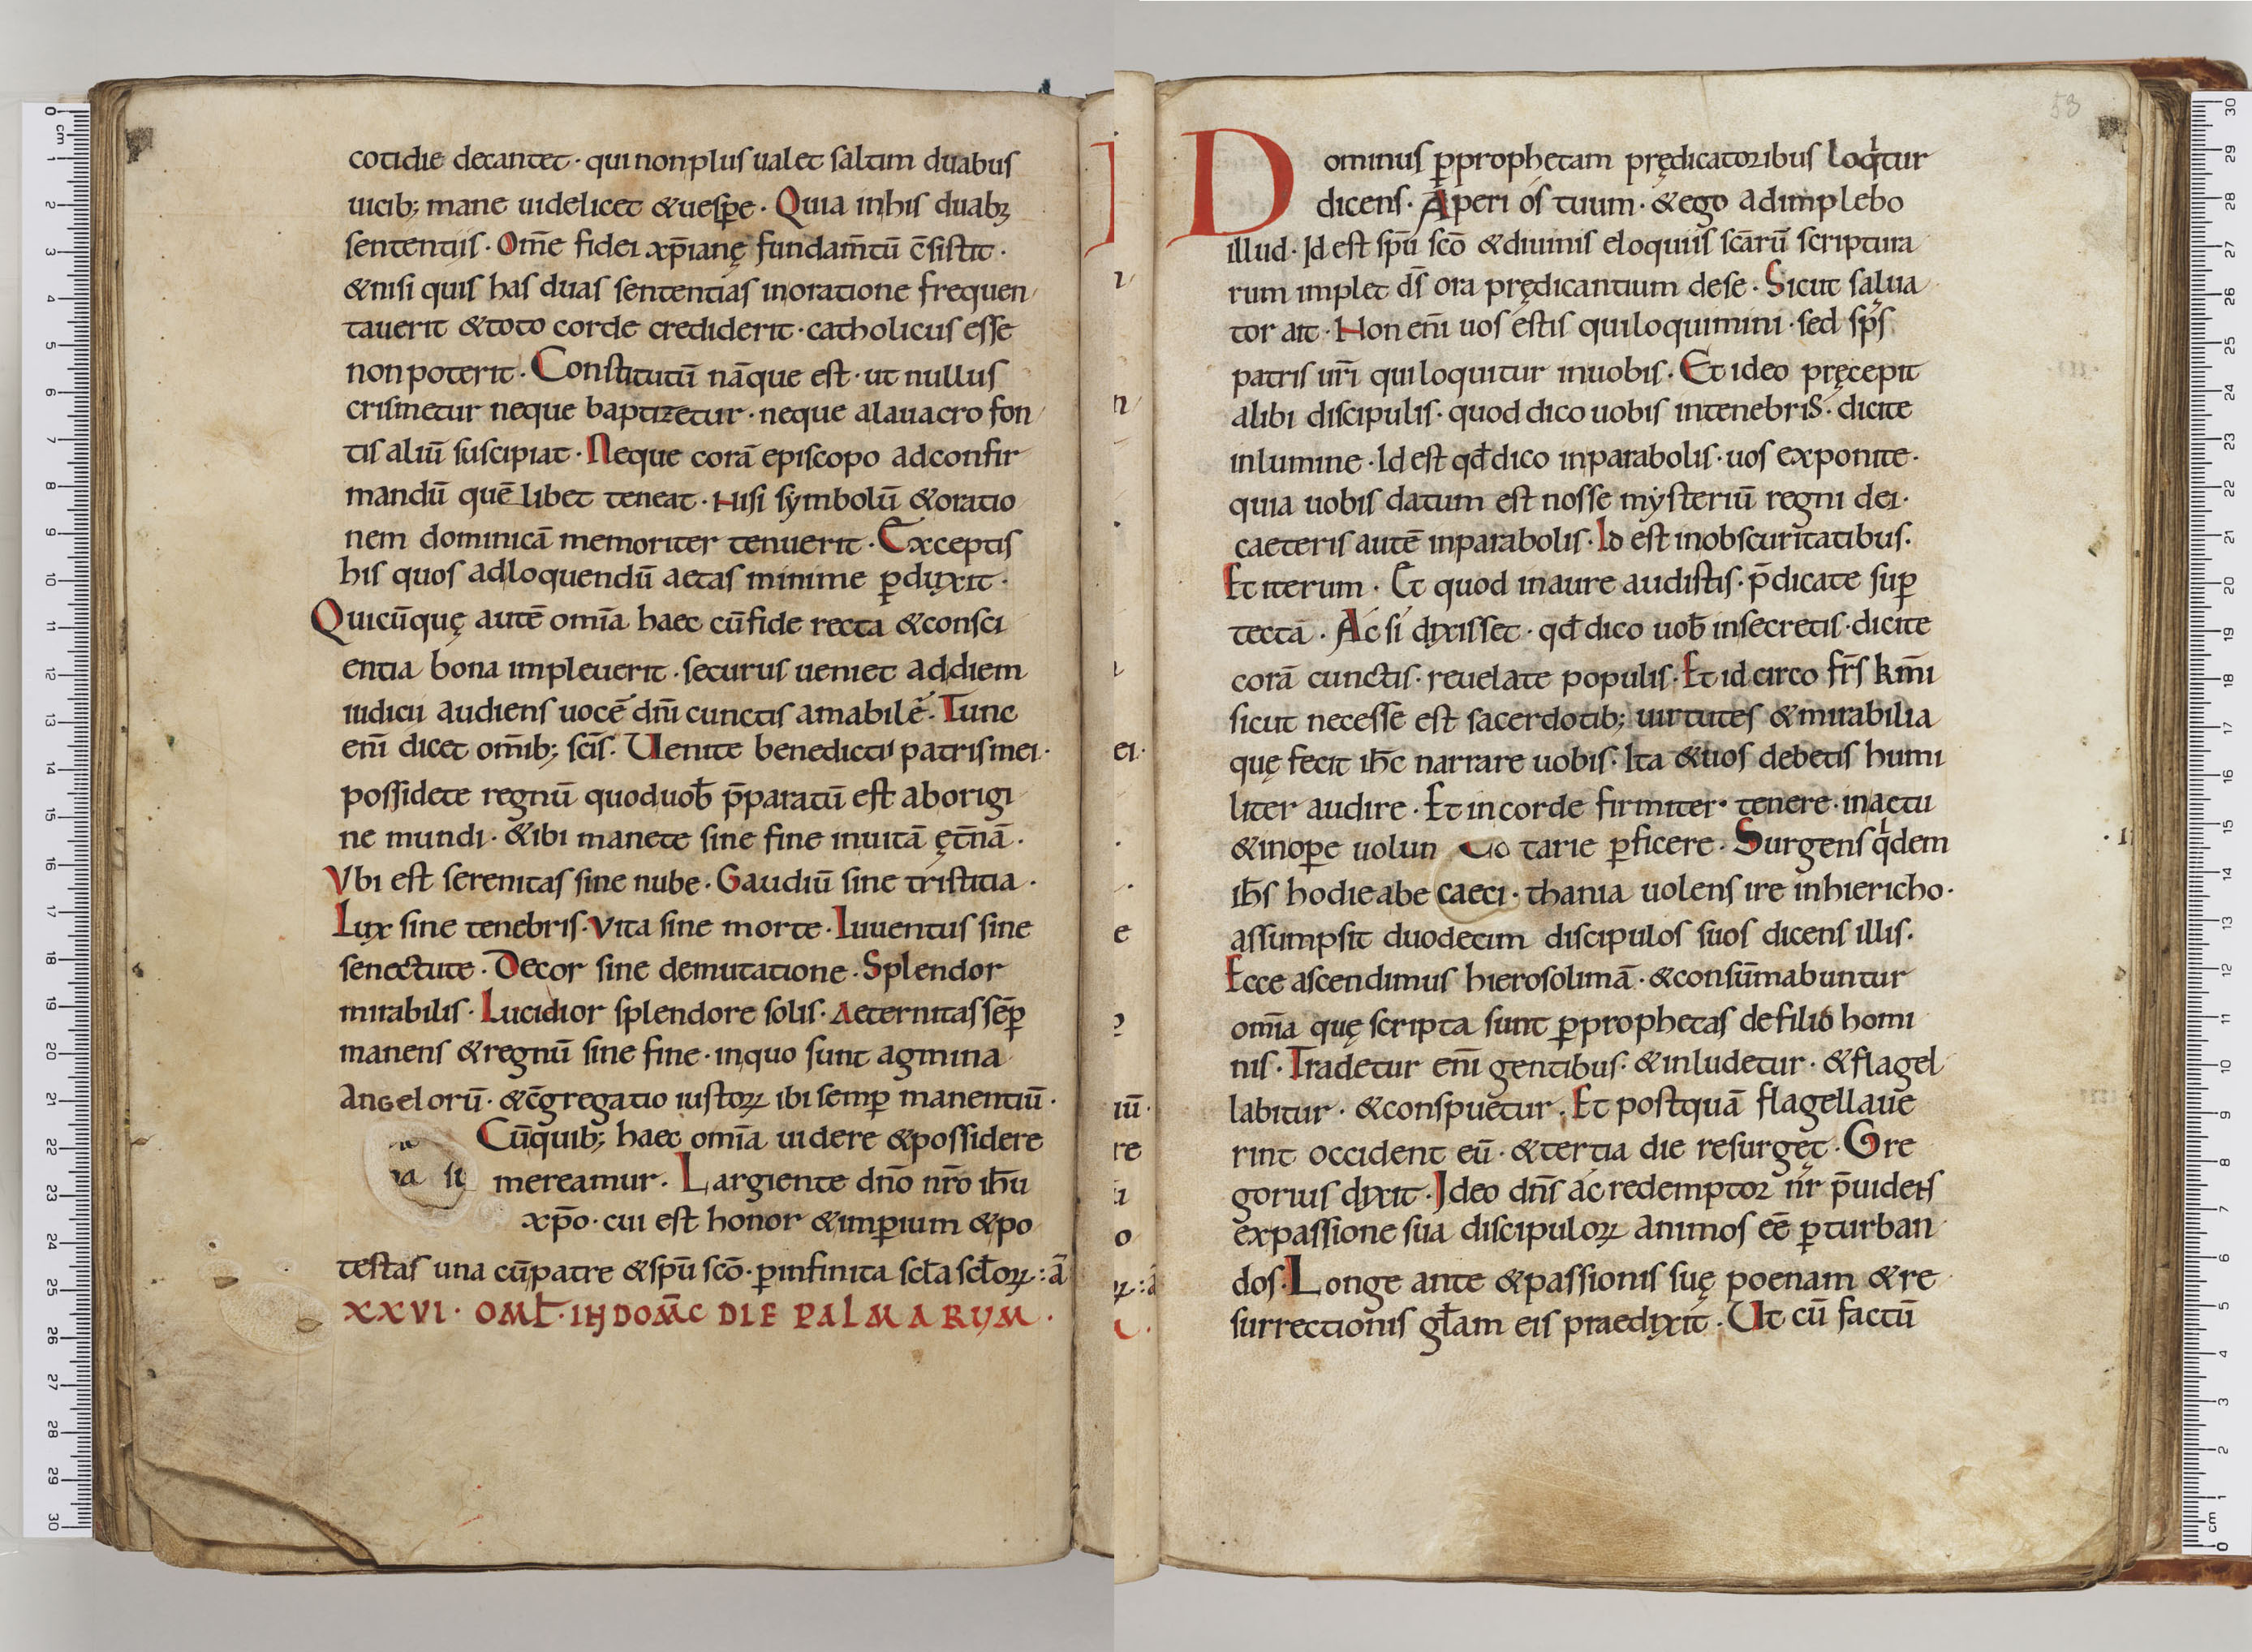 cotidie decantet· qui non plus ualet saltim duabus
uicib; mane uidelicet & uesp̱e· Quia in his duabꝫ
sententiis· Om̄e fidei xp̄ianę fundam̄tū c̄sistit·
& nisi quis has duas sententias in oratione frequen
tauerit & toto corde crediderit· catholicus esse
non poterit· Constitutū nāque est· ut nullus
crismetur neque baptizetur· neque a lauacro fon
tis aliū suscipiat· Neque corā episcopo ad confir
mandū quē libet teneat· Nisi symbolū & oratio
nem dominicā memoriter tenuerit· Exceptis
his quos ad loquendū aetas minime ꝑduxit·
Quicūquę autē omīa haec cū fide recta & consci
entia bona impleuerit· securus ueniet ad diem
iudicii audiens uocē dn̄i cunctis amabilē· Tunc
en̄i dicet om̄ib; sc̄is· Uenite benedicti patris mei·
possidete regnū quod uob̄ p̄paratū est ab origi
ne mundi· & ibi manete sine fine in uitā ęt̄nā·
Vbi est serenitas sine nube· Gaudiū sine tristitia·
Lux sine tenebris· Vita sine morte· Iuuentus sine
senectute· Decor sine demutatione· Splendor
mirabilis· Lucidior splendore solis· Aeternitas sēꝑ
manens & regnū sine fine· in quo sunt agmina
angelorū· & c̄gregatio iustoꝝ ibi semꝑ manentiū·
Cū quib; haec omīa uidere & possidere
mereamur· Largiente dn̄o nr̄o ih̄u
xp̄o· cui est honor & imꝑium & po
testas una cū patre & sp̄u sc̄o· ꝑ infinita scl̄a scl̄oꝝ:· ā
XXVI· OML̄· IN DOM̄C DIE PALMARUM·
53
Dominus ꝑ prophetam prędicatoribus loqͥtur
dicens· Aperi os tuum· & ego adimplebo
illud· Id est sp̄u sc̄o & diuinis eloquiis sc̄arū scriptura
rum implet ds̄ ora prędicantium de se· Sicut salua
tor ait· Non en̄i uos estis qui loquimini· sed sp̄s
patris ur̄i qui loquitur in uobis· Et ideo pręcepit
alibi discipulis· quod dico uobis in tenebris· dicite
in lumine· Id est qd̄ dico in parabolis· uos exponite·
quia uobis datum est nosse mẏsteriū regni dei·
caeteris autē in parabolis· Id est in obscuritatibus·
Et iterum· Et quod in aure audistis· p̄dicate suꝑ
tecta· Ac si dixisset· qd̄ dico uob̄ in secretis· dicite
corā cunctis· reuelate populis· Et id circo fr̄s km̄i
sicut necesse est sacerdotib; uirtutes & mirabilia
quę fecit ih̄c narrare uobis· Ita & uos debetis humi
liter audire· Et in corde firmiter· tenere· in actu
& in oꝑe uolun tarie ꝑficere· Surgens qͥdem
ih̄s hodie a be caeci· thania uolens ire in hiericho·
assumpsit duodecim discipulos suos dicens illis·
Ecce ascendimus hierosolimā· & consūmabuntur
omīa quę scripta sunt ꝑ prophetas de filio homi
nis· Tradetur en̄i gentibus· & inludetur· & flagel
labitur· & conspuetur· Et postquā flagellaue
rint occident eū· & tertia die resurgęt· Gre
gorius dixit· Ideo dn̄s ac redemptor nr̄ p̄uidens
ex passione sua discipuloꝝ animos eē ꝑturban
dos· Longe ante & passionis suę poenam & re
surrectionis gl̄am eis praedixit· Ut cū factū